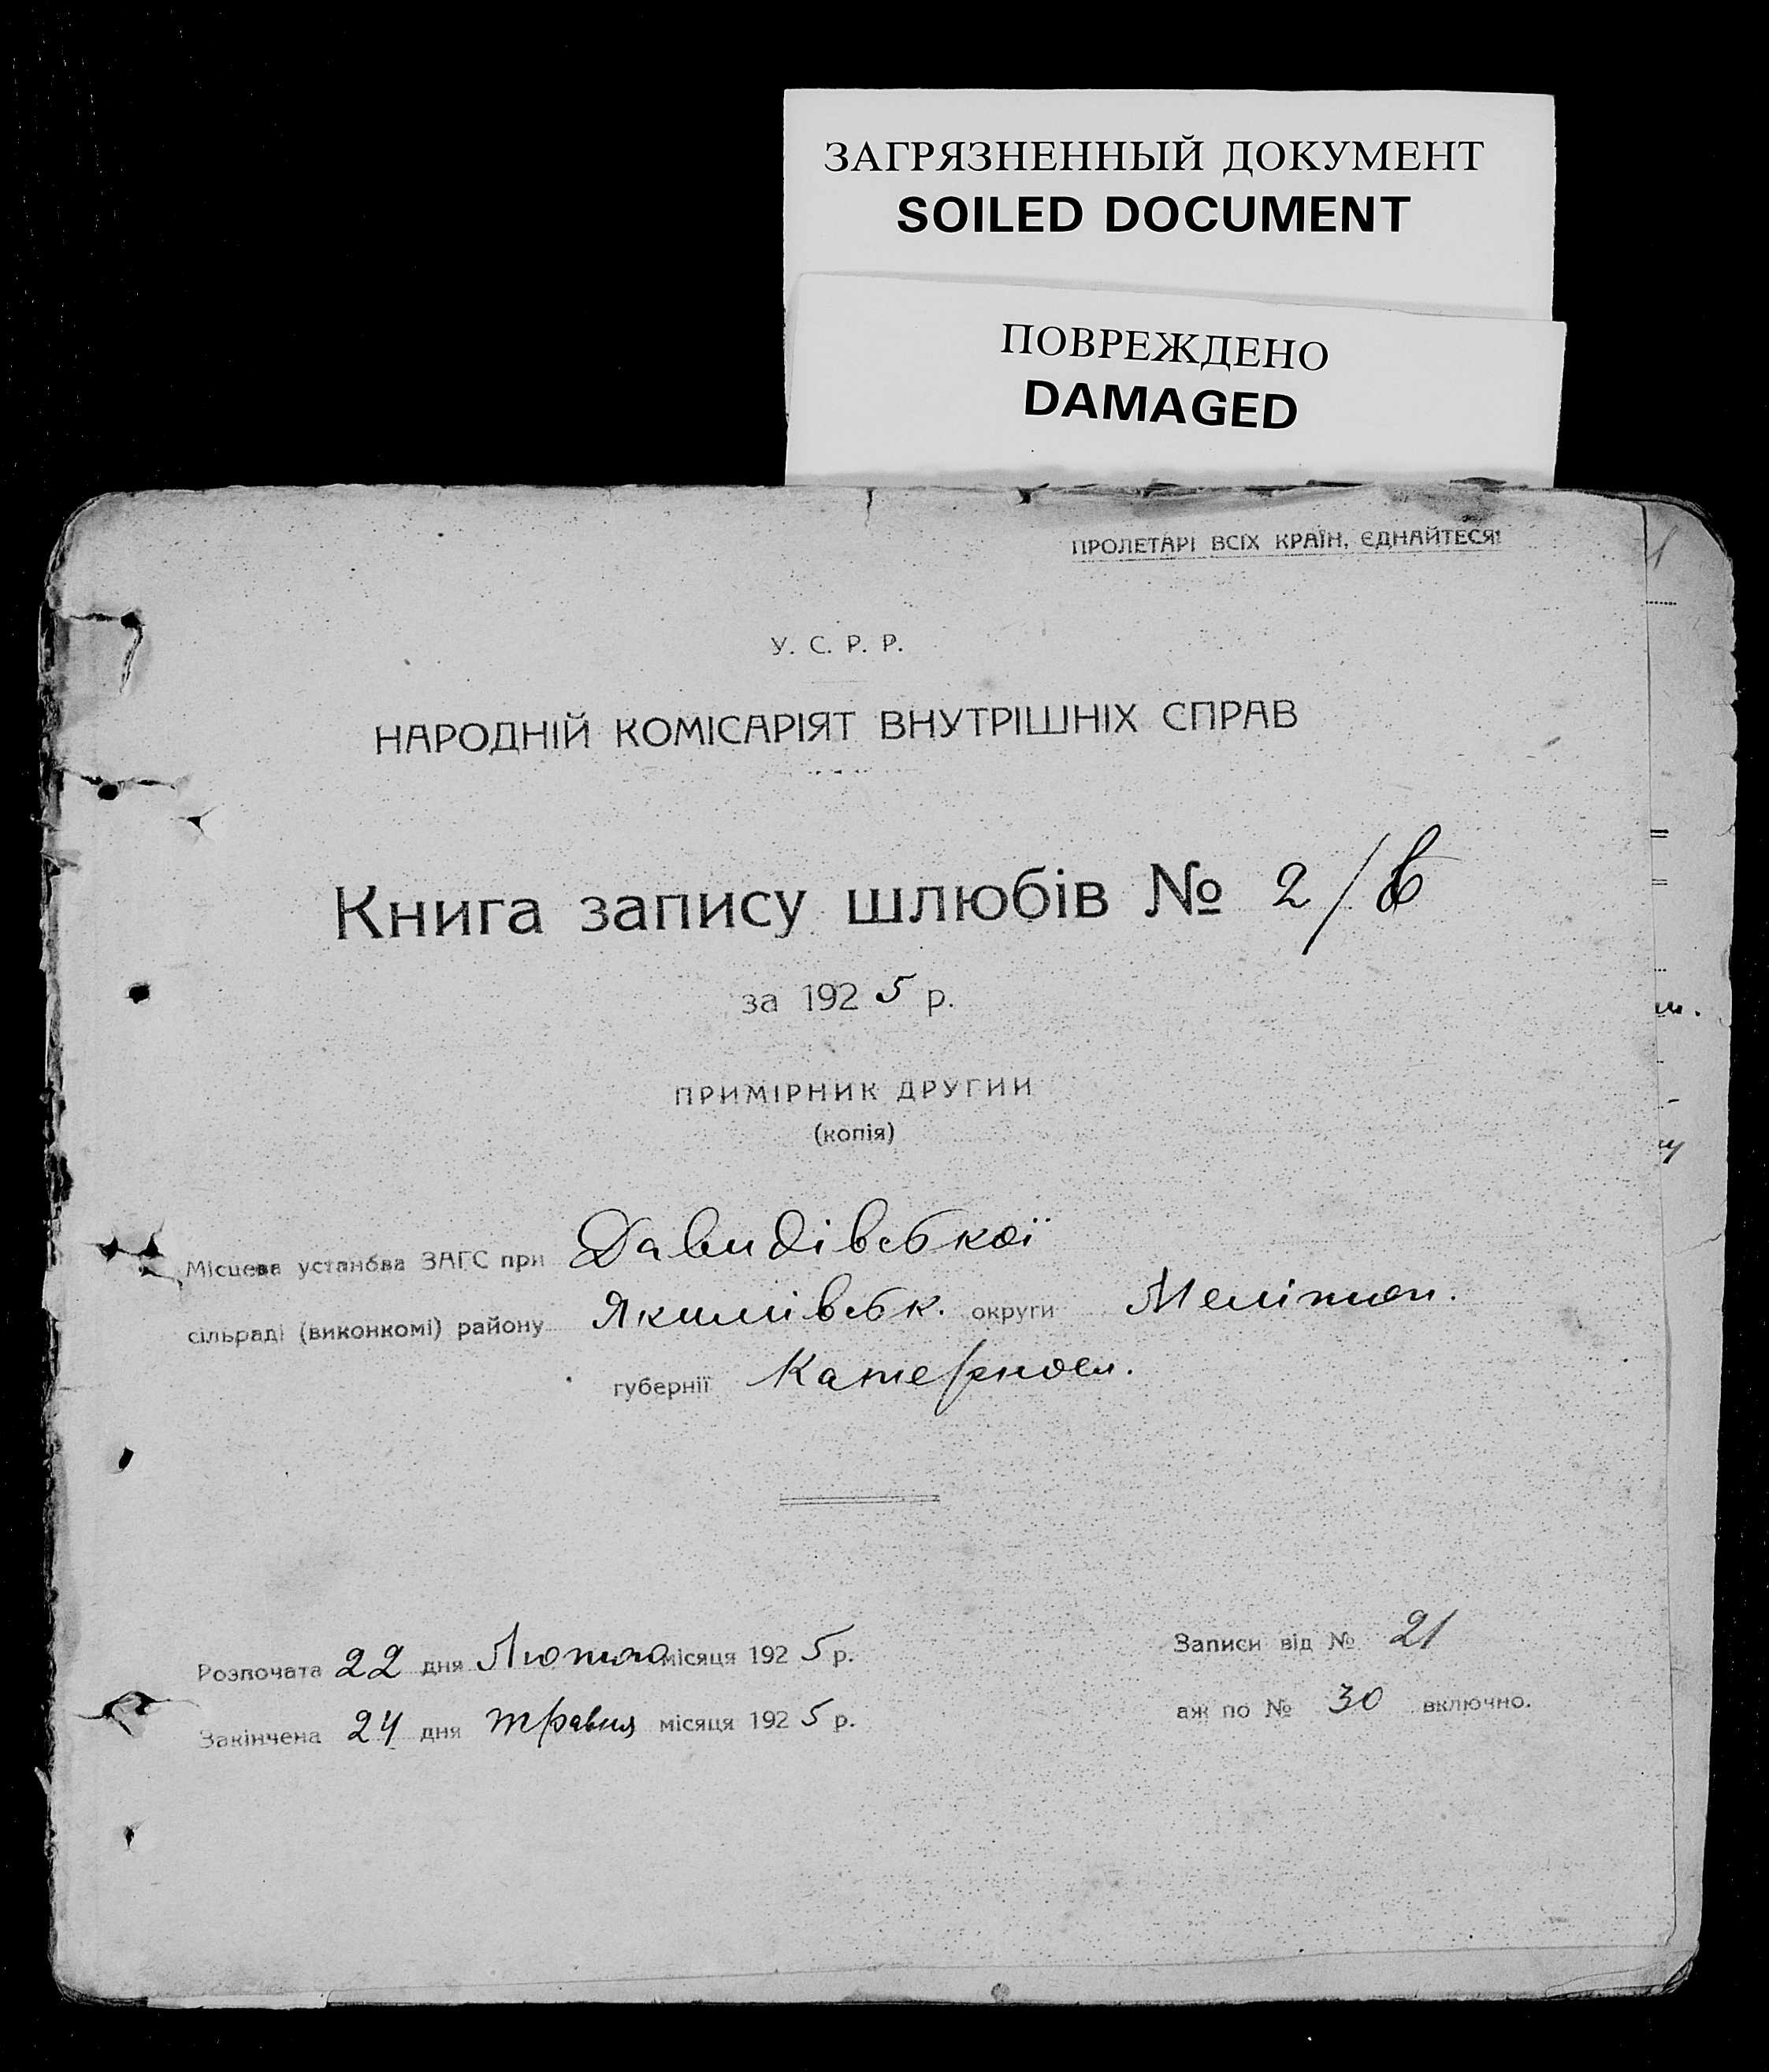 ЗАГРЯЗНЕННЫЙ ДОКУМЕНТ
SOILED DOCUMENT
ПОВРЕЖДЕНО
DAMAGED
ПРОЛЕТАРІ ВСІХ КРАЇН, ЄДНАЙТЕСЯ!
У. С. Р. Р.
НАРОДНІЙ КОМІСАРІЯТ ВНУТРІШНІХ СПРАВ
Книга запису шлюбів № 2/в
за 1925 р.
ПРИМІРНИК ДРУГИЙ
(копія)
Місцева установа ЗАГС при Давидівської
сільраді (виконкомі) району Якимівськ. округи Мелітоп.
губернії Катериносл.
Розпочата 22 дня Лютого місяця 1925 р. Записи від № 21
Закінчена 24 дня травня місяця 1925 р. аж по № 30 включно.